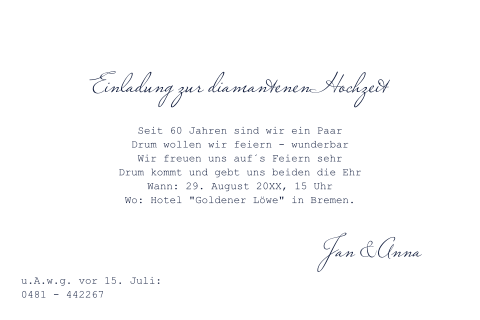 Einladung zur diamantenen Hochzeit
Seit 60 Jahren sind wir ein Paar
Drum wollen wir feiern - wunderbar
Wir freuen uns auf´s Feiern sehr
Drum kommt und gebt uns beiden die Ehr
Wann: 29. August 20XX, 15 Uhr
Wo: Hotel "Goldener Löwe" in Bremen.
Jan & Anna
u.A.w.g. vor 15. Juli:
0481 - 442267